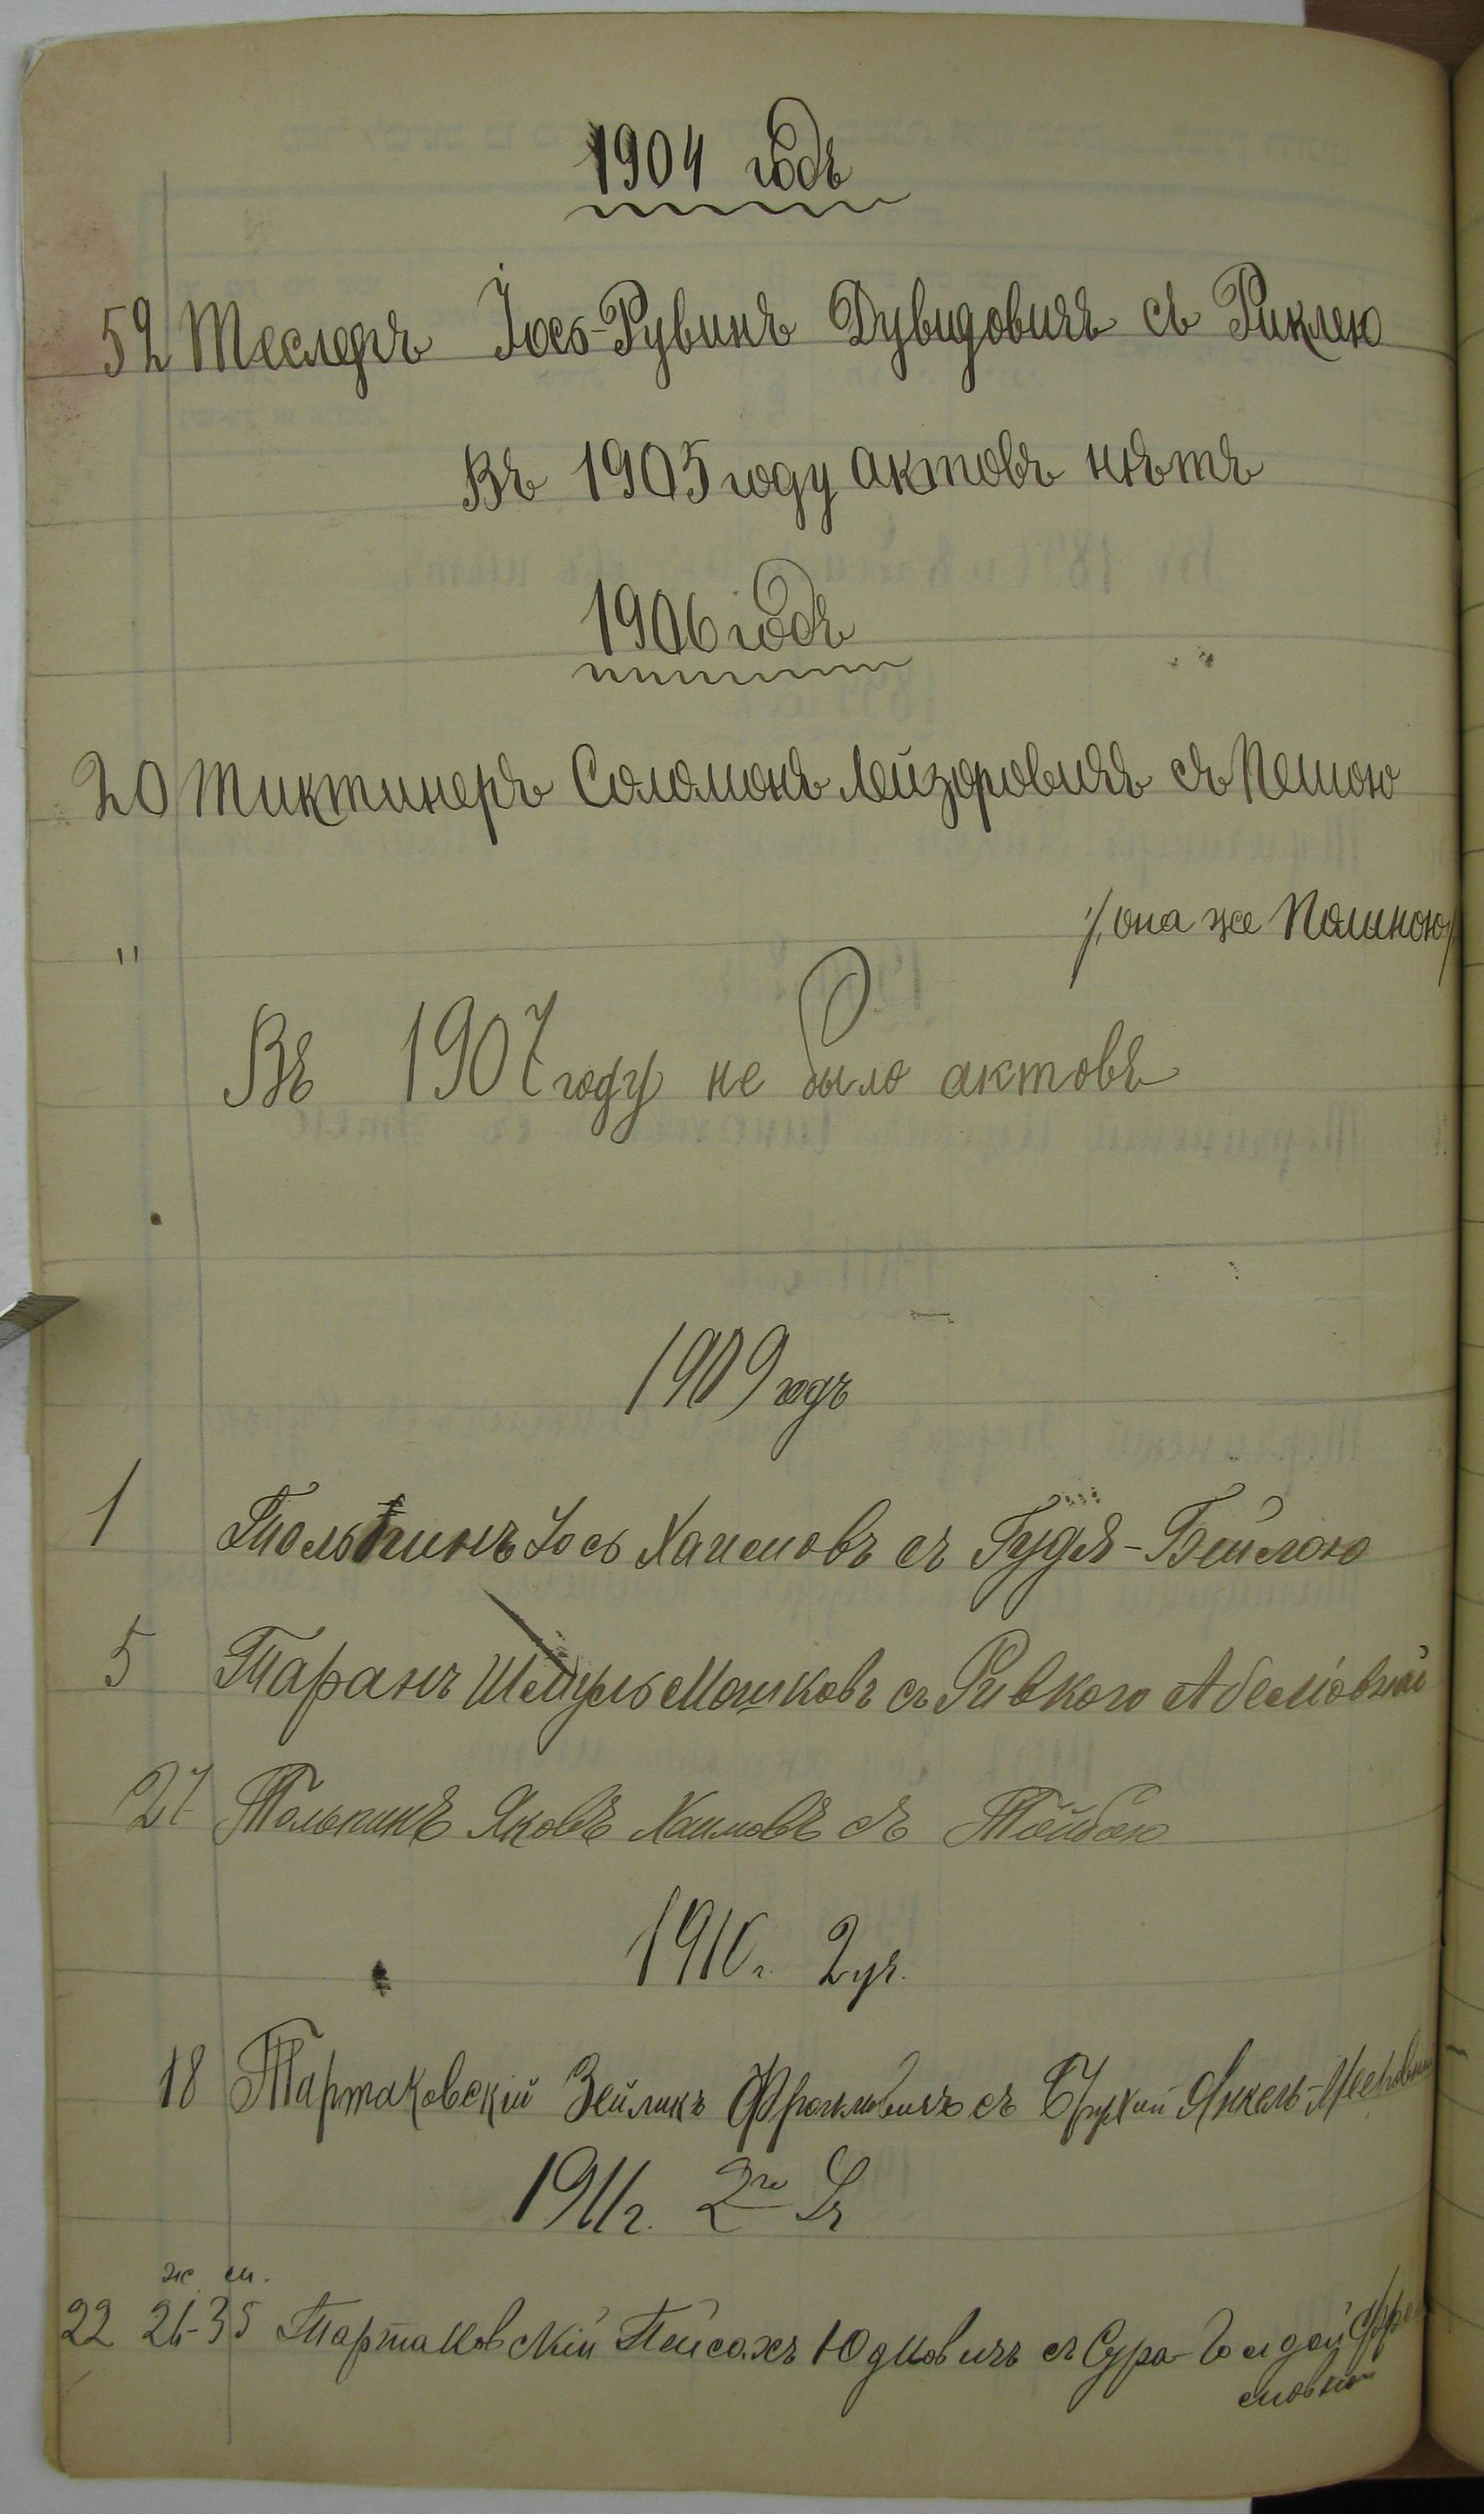 1904 годъ
52 Теслеръ Іось-Рувинъ Дувидовичъ съ Риклею
Въ 1905 году актовъ нѣтъ
1906 годъ
20 Тиктинеръ Соломонъ Лейзоровичъ съ Пешою
" /, она же Полиною/
Въ 1907 году не было актовъ
1909 годъ
1 Толь Іось Хаимовъ съ Гудя-Бейлою
5 Таранъ Шмуль Мошковъ съ Ривкою
27 Толькинъ Яковъ Хаимовъ съ Тойбою
1910 г. 2 уч.
18 Тартаковскій Зейликъ съ Янкель-Мееровны
1911 г. 2го
ж. м.
22 21-35 Тартаковскій Пейсахъ Юдковичъ съ Сура-Голдой